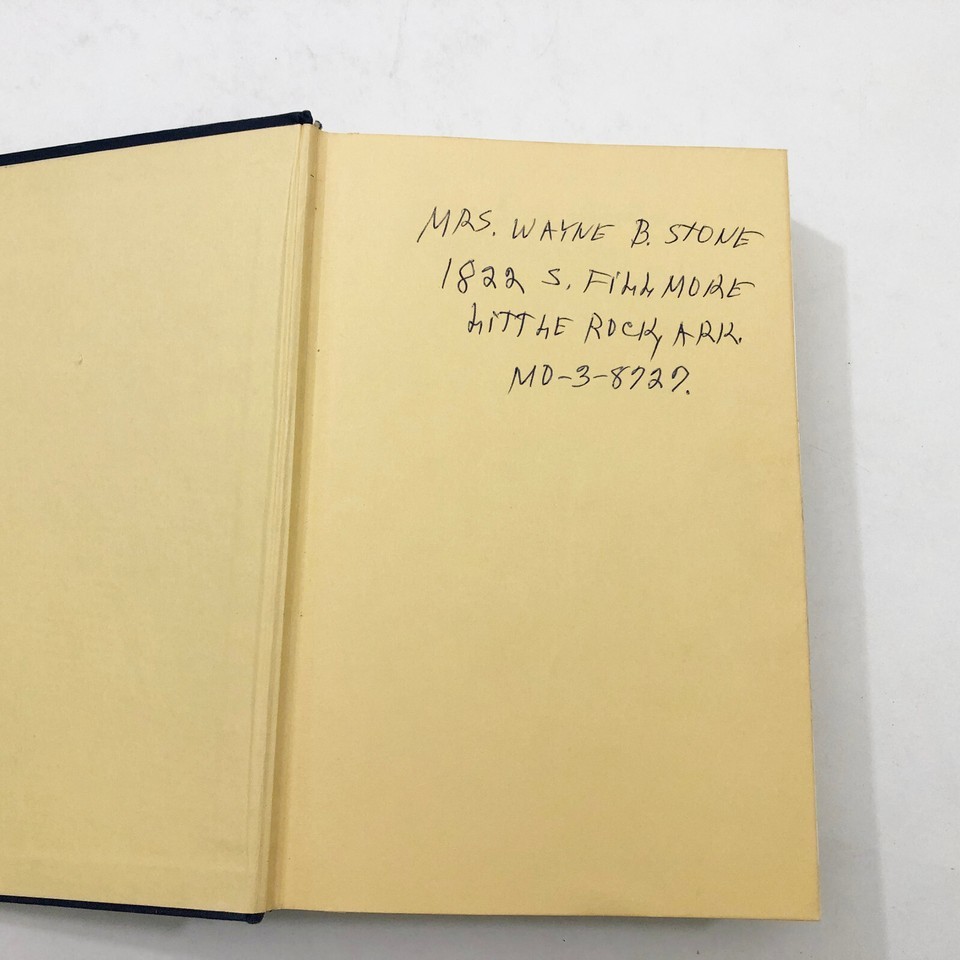 MRS. WAYNE B. STONE
1822 S. FILLMORE
LITTLE ROCK, ARK.
MO-3-8727.